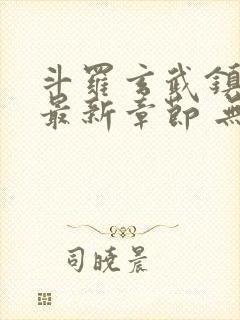 斗羅玄武鎮
最新章節 無
司曉晨